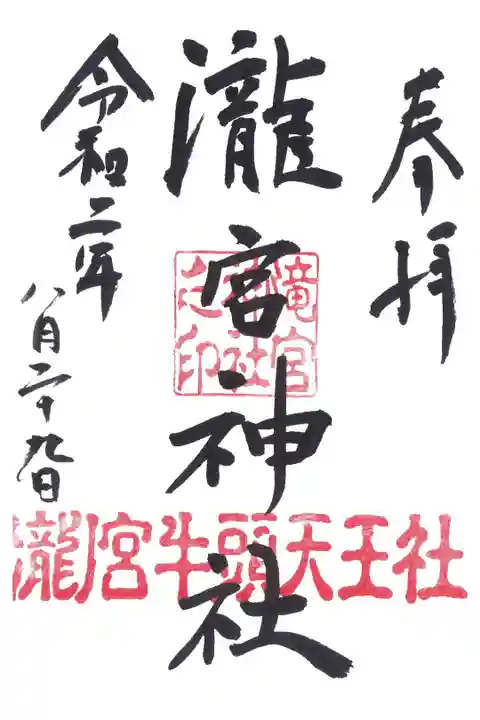 奉拝
瀧宮神社
滝宮
神社
之印
瀧宮牛頭天王社
令和二年
八月二十九日